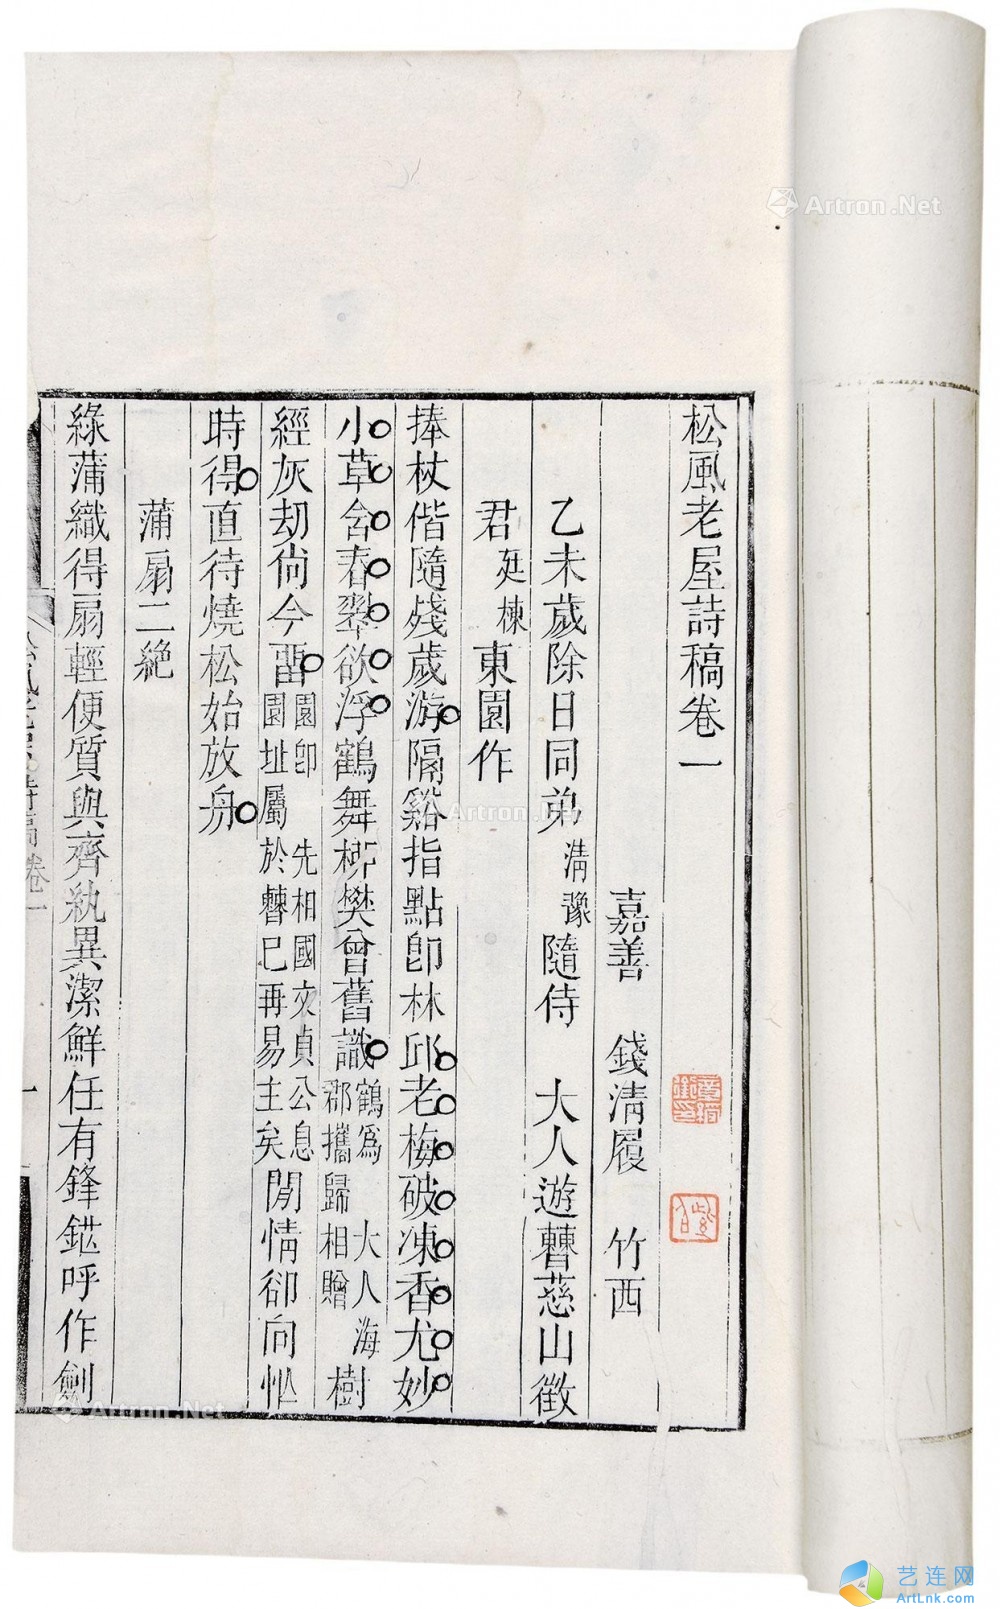 松風老屋詩稿卷一
章綬銜印
紫伯
嘉善 錢清履 竹西
乙未歲除日同弟清豫隨侍 大人遊曹慈山徵
君廷棟東園作
捧杖偕隨殘歲游隔谿指點卽林邱老梅破凍香尤妙
小草含春翠欲浮鶴舞柳樊曾舊識鶴爲 大人海郡攜歸相贈樹
經灰劫尙今畱園卽 先相國文貞公息園址屬於曹已再易主矣閒情卻向忙
時得直待燒松始放舟
蒲扇二絶
綠蒲織得扇輕便質與齊紈異潔鮮任有鋒鋩呼作劍
松風老屋詩稿卷一 一
Artron.Net
Artron.Net
Artron.Net
艺连网
ArtLnk.com